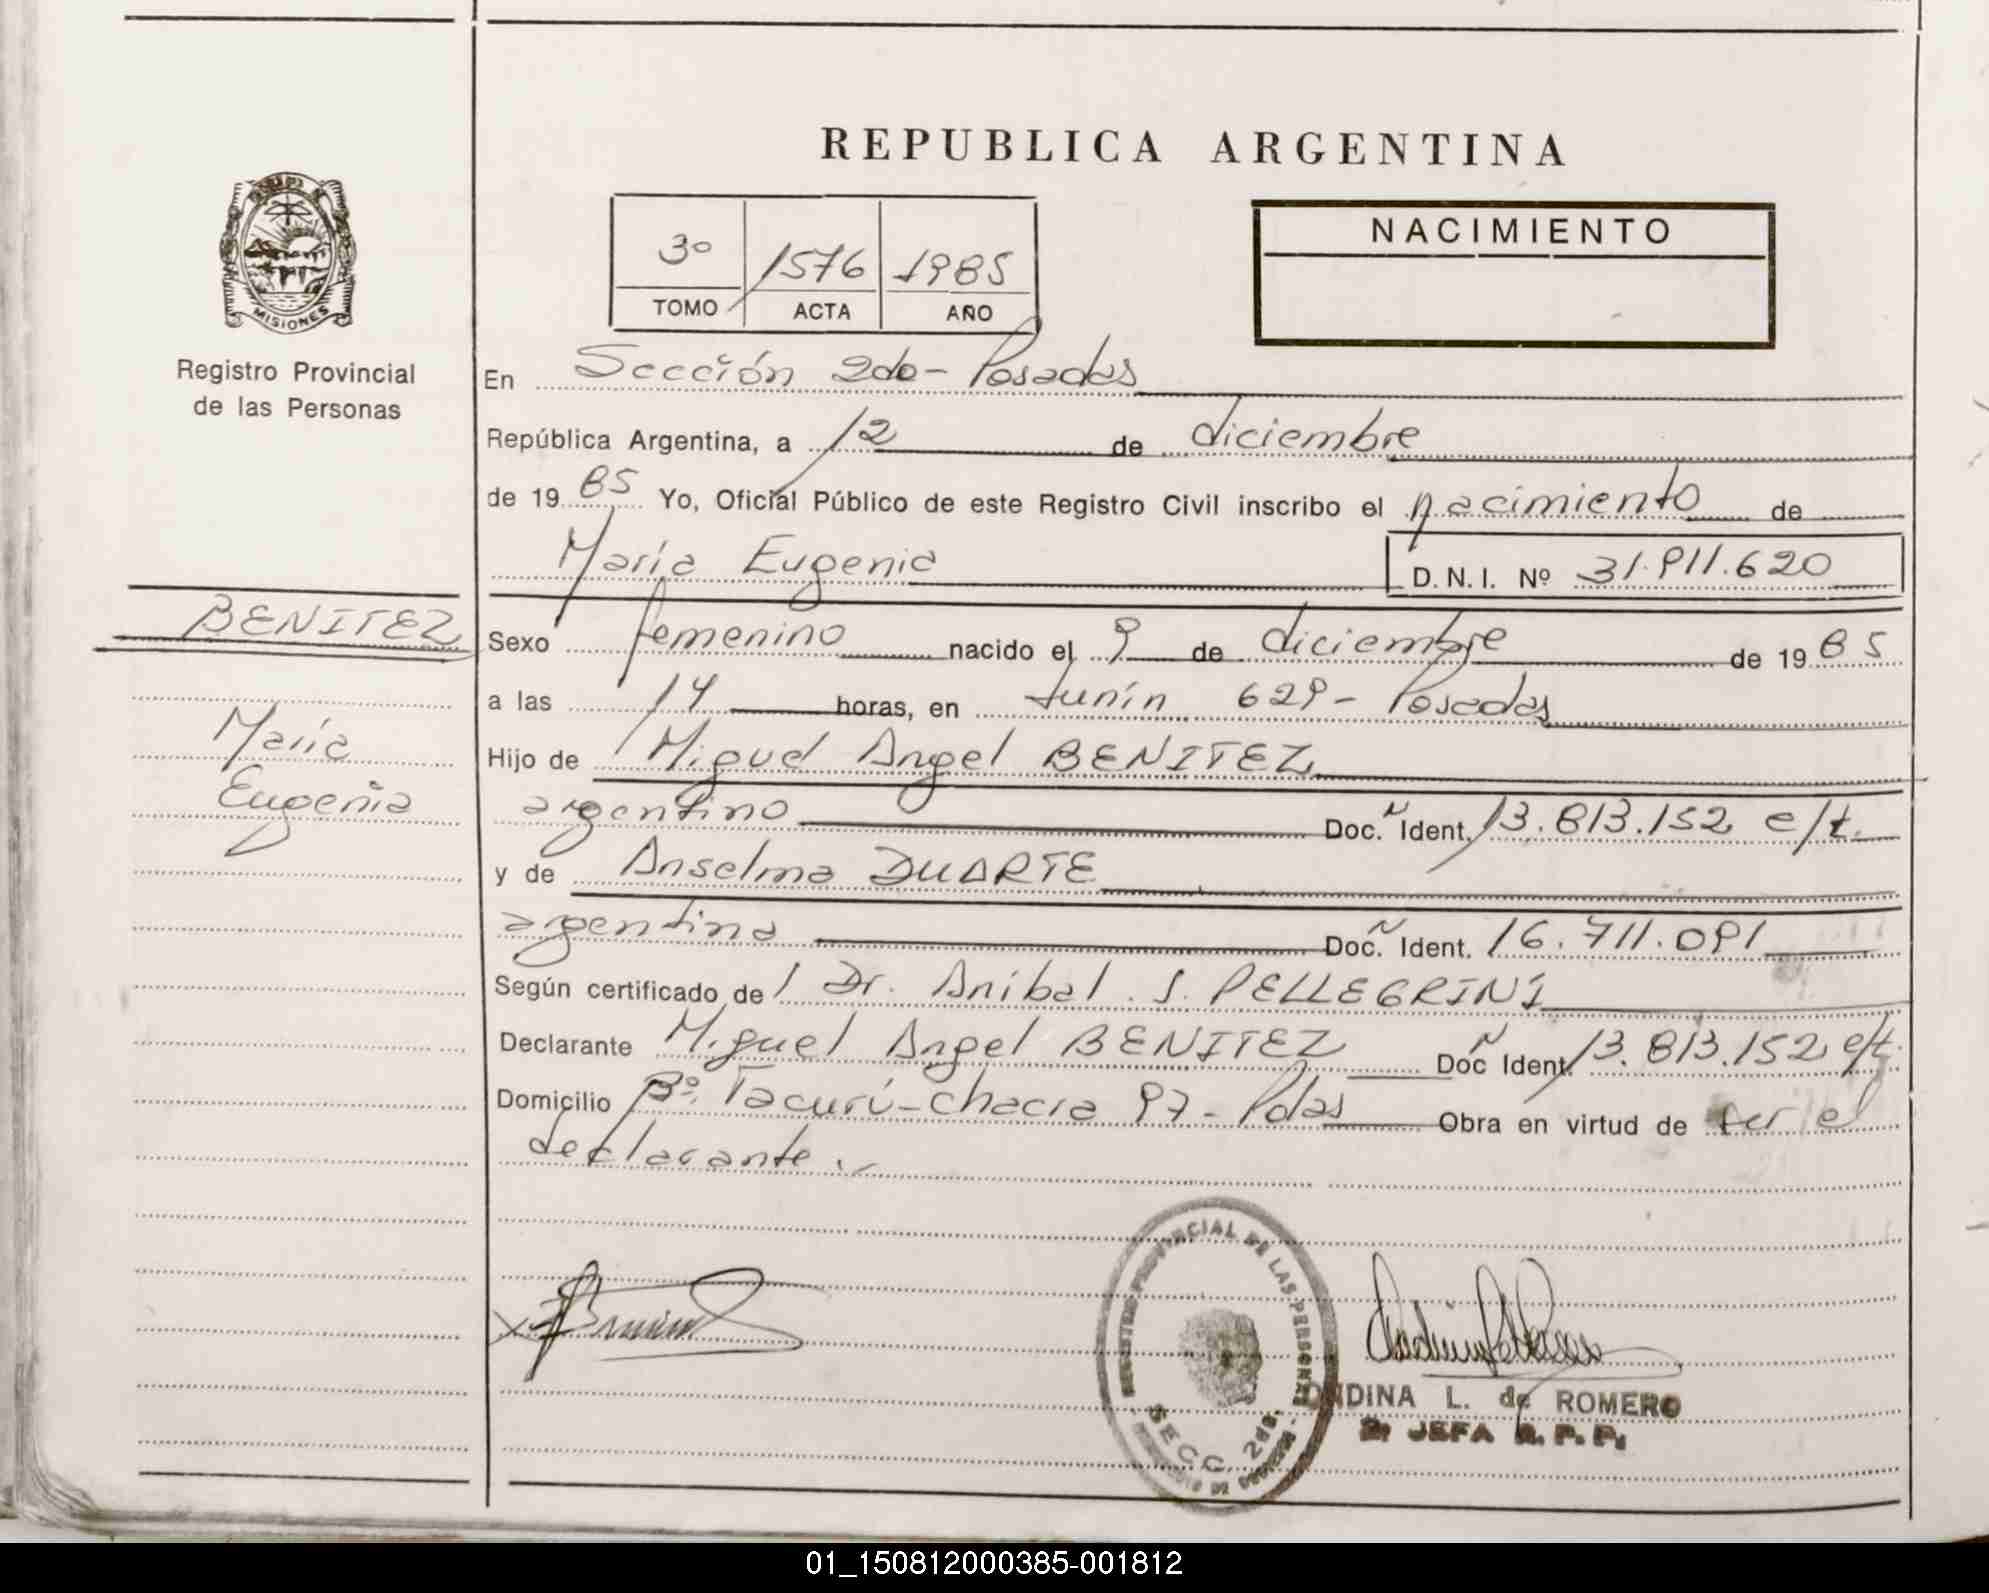 REPUBLICA ARGENTINA
MISIONES
Registro Provincial
de las Personas
3º 1576 1985
TOMO ACTA AÑO
NACIMIENTO
En Sección 2da- Posadas
República Argentina, a 12 de diciembre
de 1985 Yo, Oficial Público de este Registro Civil inscribo el nacimiento de
María Eugenia D.N.I. Nº 31.911.620
BENITEZ
María
Eugenia
Sexo femenino nacido el 9 de diciembre de 1985
a las 14 horas, en Junín 629- Posadas
Hijo de Miguel Angel BENITEZ
argentino Doc. Ident. 13.813.152 e/t.
y de Anselma DUARTE
argentina Doc. Ident. 16.711.091
Según certificado de Dr. Aníbal J. PELLEGRINI
Declarante Miguel Angel BENITEZ Doc Ident. 13.813.152 e/t.
Domicilio Bº. Tacurú-chacra 97- Pdas Obra en virtud de ser el
declarante.-
REGISTRO PROVINCIAL DE LAS PERSONAS
SECC. 2da.
ONDINA L. de ROMERO
JEFA R.P.P.
01_150812000385-001812